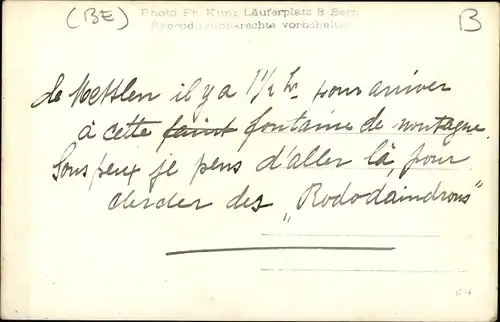 (BE)
Photo Fr. Kunz Läuferplatz 8 Bern
Reproduktionsrechte vorbehalten
B
de Mettlen il y a 1 1/2 hr pour arriver
à cette faint fontaine de montagne.
Sous peux je pens d'aller là, pour
chercher des „Rododaindrons"